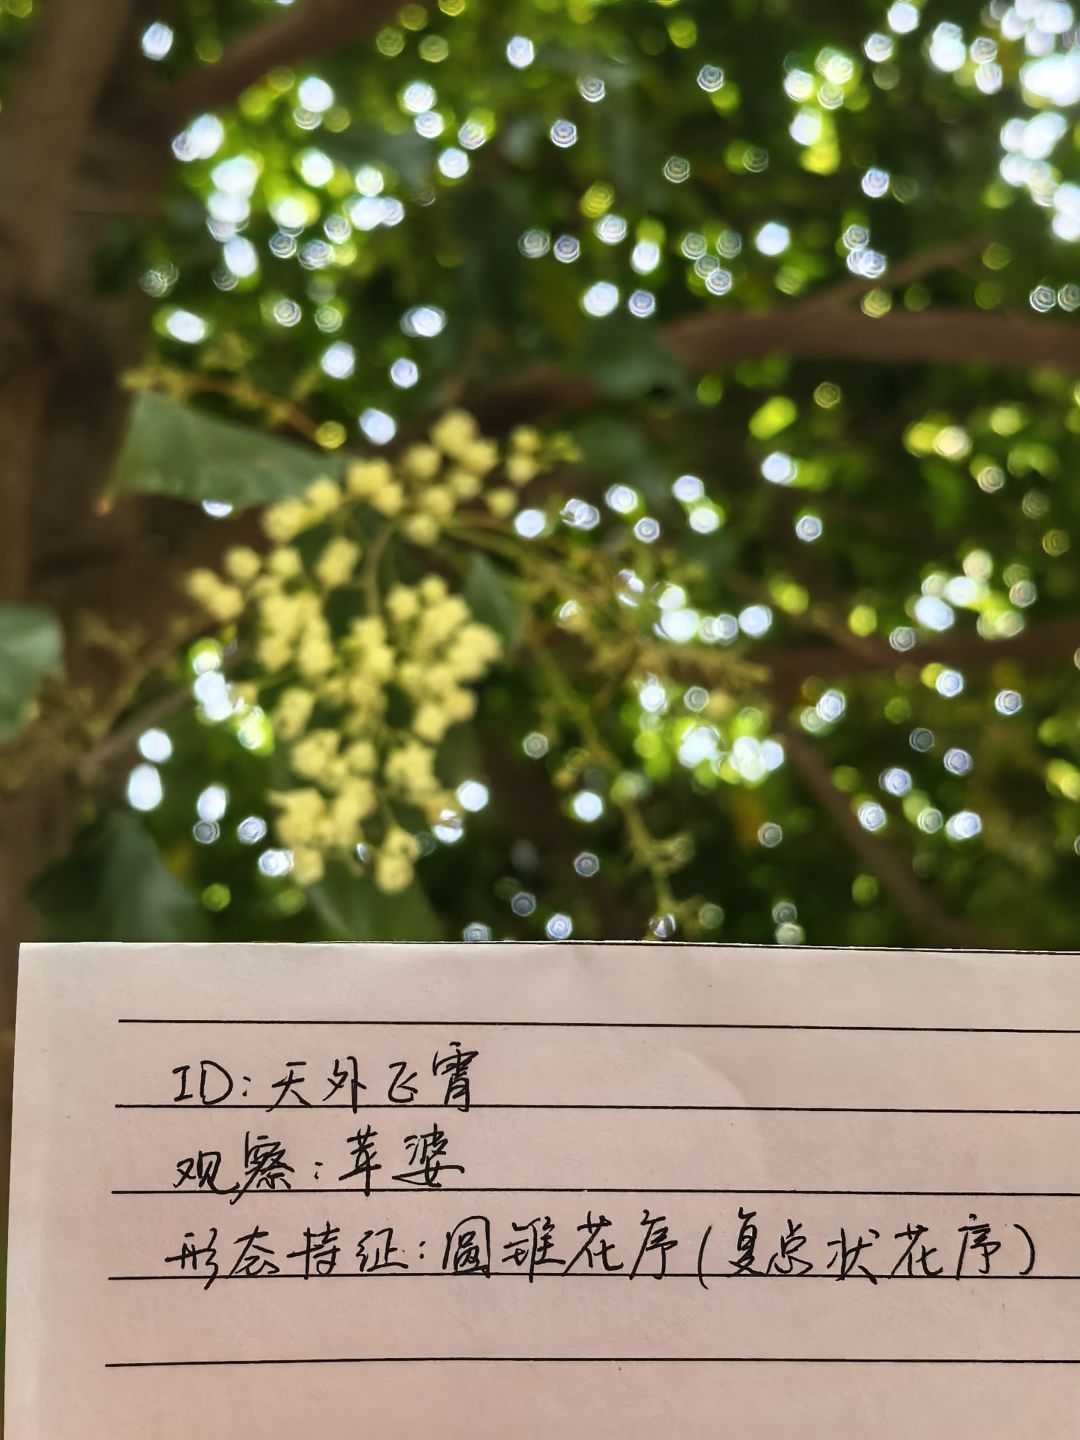 ID:天外飞霄
观察:苹婆
形态特征:圆锥花序(复总状花序)